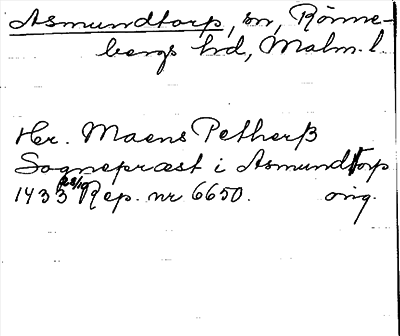 Asmundtorp, sn, Rönne-
bergs hd, Malm. l.
Hr. Maens Petherß
Sognepræst i Asmundtorp
1433 28/10 Rep. nr 6650. orig.